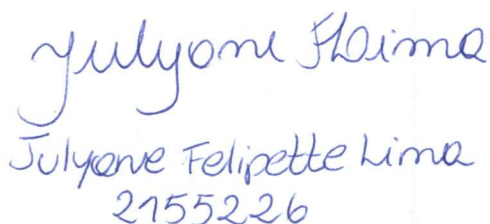 Julyane FLima
Julyane Felipette Lima
2155226